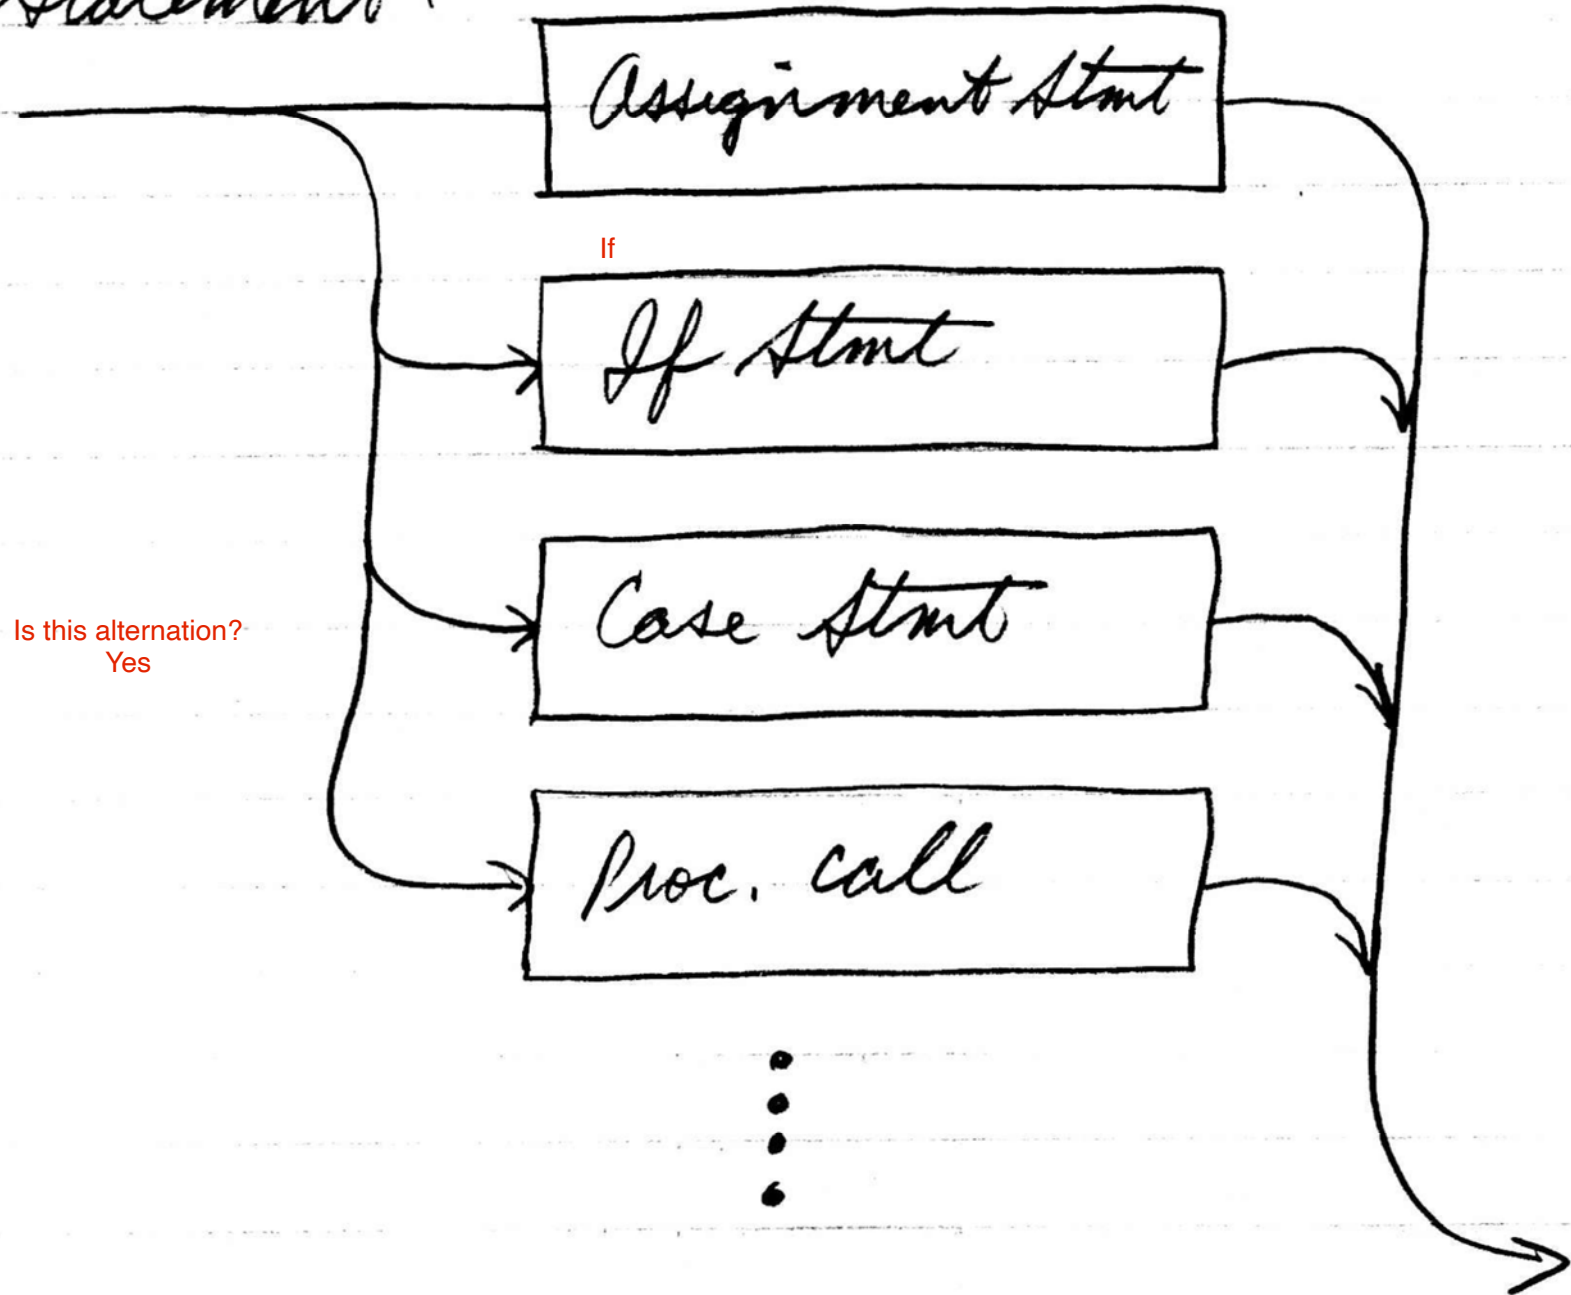 Statement
Assignment Stmt
If
If Stmt
Case Stmt
Is this alternation?
Yes
Proc. call